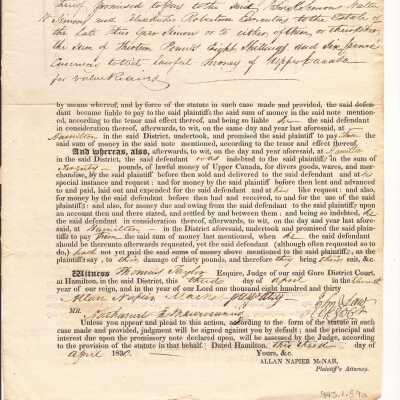 promised to pay to the said
Simon and Robertson Executors to the Estate of
the Late or to either of them, or their order
the Sum of Thirteen Pounds Eight Shillings and Six pence
lawful money of Upper Canada
for value Received
by means whereof, and by force of the statute in such case made and provided, the said defend-
ant became liable to pay to the said plaintiffs the said sum of money in the said note mention-
ed, according to the tenor and effect thereof, and being so liable he the said defendant
in consideration thereof, afterwards, to wit, on the same day and year last aforesaid, at
Hamilton in the said District, undertook, and promised the said plaintiffs to pay them the said
sum of money in the said note mentioned, according to the tenor and effect thereof.
And whereas, also, afterwards, to wit, on the day and year last aforesaid, at Hamilton
in the said District, the said defendant was indebted to the said plaintiffs in the sum of
Twenty pounds, of lawful money of Upper Canada, for divers goods, wares, and mer-
chandise, by the said plaintiffs before then sold and delivered to the said defendant and at his
special instance and request: and for money by the said plaintiffs before then lent and advanced
to and paid, laid out and expended for the said defendant and at his like request: and also,
for money by the said defendant before then had and received, to and for the use of the said
plaintiffs: and also, for money due and owing from the said defendant to the said plaintiffs upon
an account then and there stated, and settled by and between them: and being so indebted, he
the said defendant in consideration thereof, afterwards, to wit, on the day and year last afore-
said, at Hamilton in the District aforesaid, undertook and promised the said plaintiffs
to pay them the said sum of money last mentioned, when he the said defendant
should be thereunto afterwards requested, yet the said defendant (although often requested so to
do,) hath not yet paid the said sums of money above mentioned to the said plaintiffs, as the
plaintiffs say, to their damage of thirty pounds, and therefore they bring their suit, &c.
Witness Thomas Taylor Esquire, Judge of our said Gore District Court,
at Hamilton, in the said District, this third day of April in the
year of our reign, and in the year of our Lord one thousand eight hundred and thirty
Allan Napier MacNab
MR.
Nathaniel
Unless you appear and plead to this action, according to the form of the statute in such
case made and provided, judgment will be signed against you by default; and the principal and
interest due upon the promissory note declared upon, will be assessed by the Judge, according
to the provision of the statute in that behalf. Dated Hamilton, this third day of
April 183 Yours, &c.
ALLAN NAPIER McNAB,
Plaintiff's Attorney.